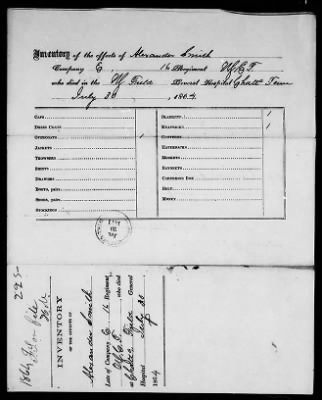 Inventory of the effects of Alexander Smith
Company C, 16 Regiment U.S.C.T.
who died in the Field General Hospital Chatt Tenn
July 30, 1864
CAPS,
DRESS COATS
OVERCOATS 1
JACKETS
TROWSERS
SHIRTS
DRAWERS
BOOTS, pairs,
SHOES, pairs,
STOCKINGS
BLANKETS, 1
KNAPSACKS 1
CANTEENS
HAVERSACKS
MUSKETS
BAYONETS
CARTRIDGE BOX
BELT,
MONEY
225
INVENTORY
OF THE EFFECTS OF
Alexander Smith
Late of Company C 16 Regiment,
U.S.C.T. who died
at Chatt. Field General
Hospital July 30
1864